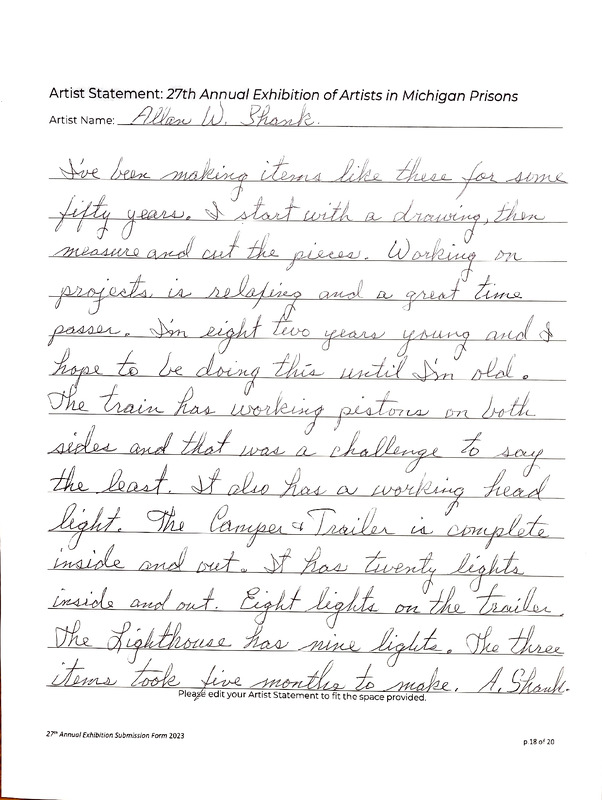 Artist Statement: 27th Annual Exhibition of Artists in Michigan Prisons
Artist Name: Allan W. Shank.
I've been making items like these for some
fifty years. I start with a drawing, then
measure and cut the pieces. Working on
projects is relaxing and a great time
passer. I'm eight two years young and I
hope to be doing this until I'm old.
The train has working pistons on both
sides and that was a challenge to say
the least. It also has a working head
light. The Camper & Trailer is complete
inside and out. It has twenty lights
inside and out. Eight lights on the trailer.
The Lighthouse has nine lights. The three
items took five months to make. A. Shank.
Please edit your Artist Statement to fit the space provided.
27th Annual Exhibition Submission Form 2023
p.18 of 20